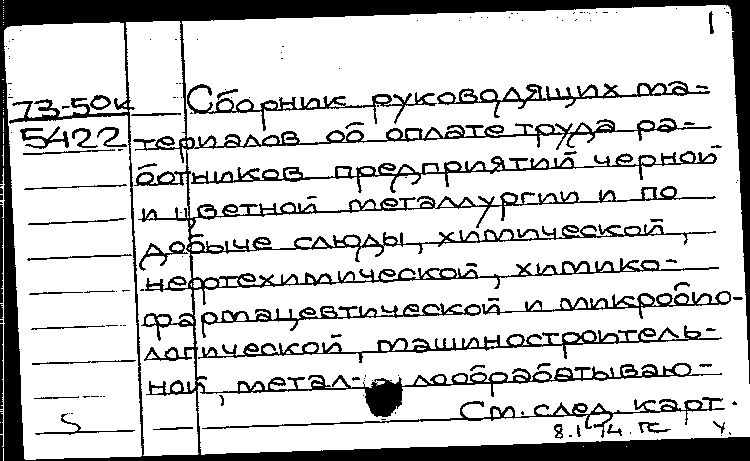 1
73-50к Сборник руководящих ма=
5422 териалов об оплате труда ра-
ботников предприятий черной
и цветной металлургии и по
добыче слюды, химической,
нефтехимической, химико-
фармацевтической и микробио-
логической, машиностроитель-
ной, метал- лообрабатываю-
S См. след. карт.